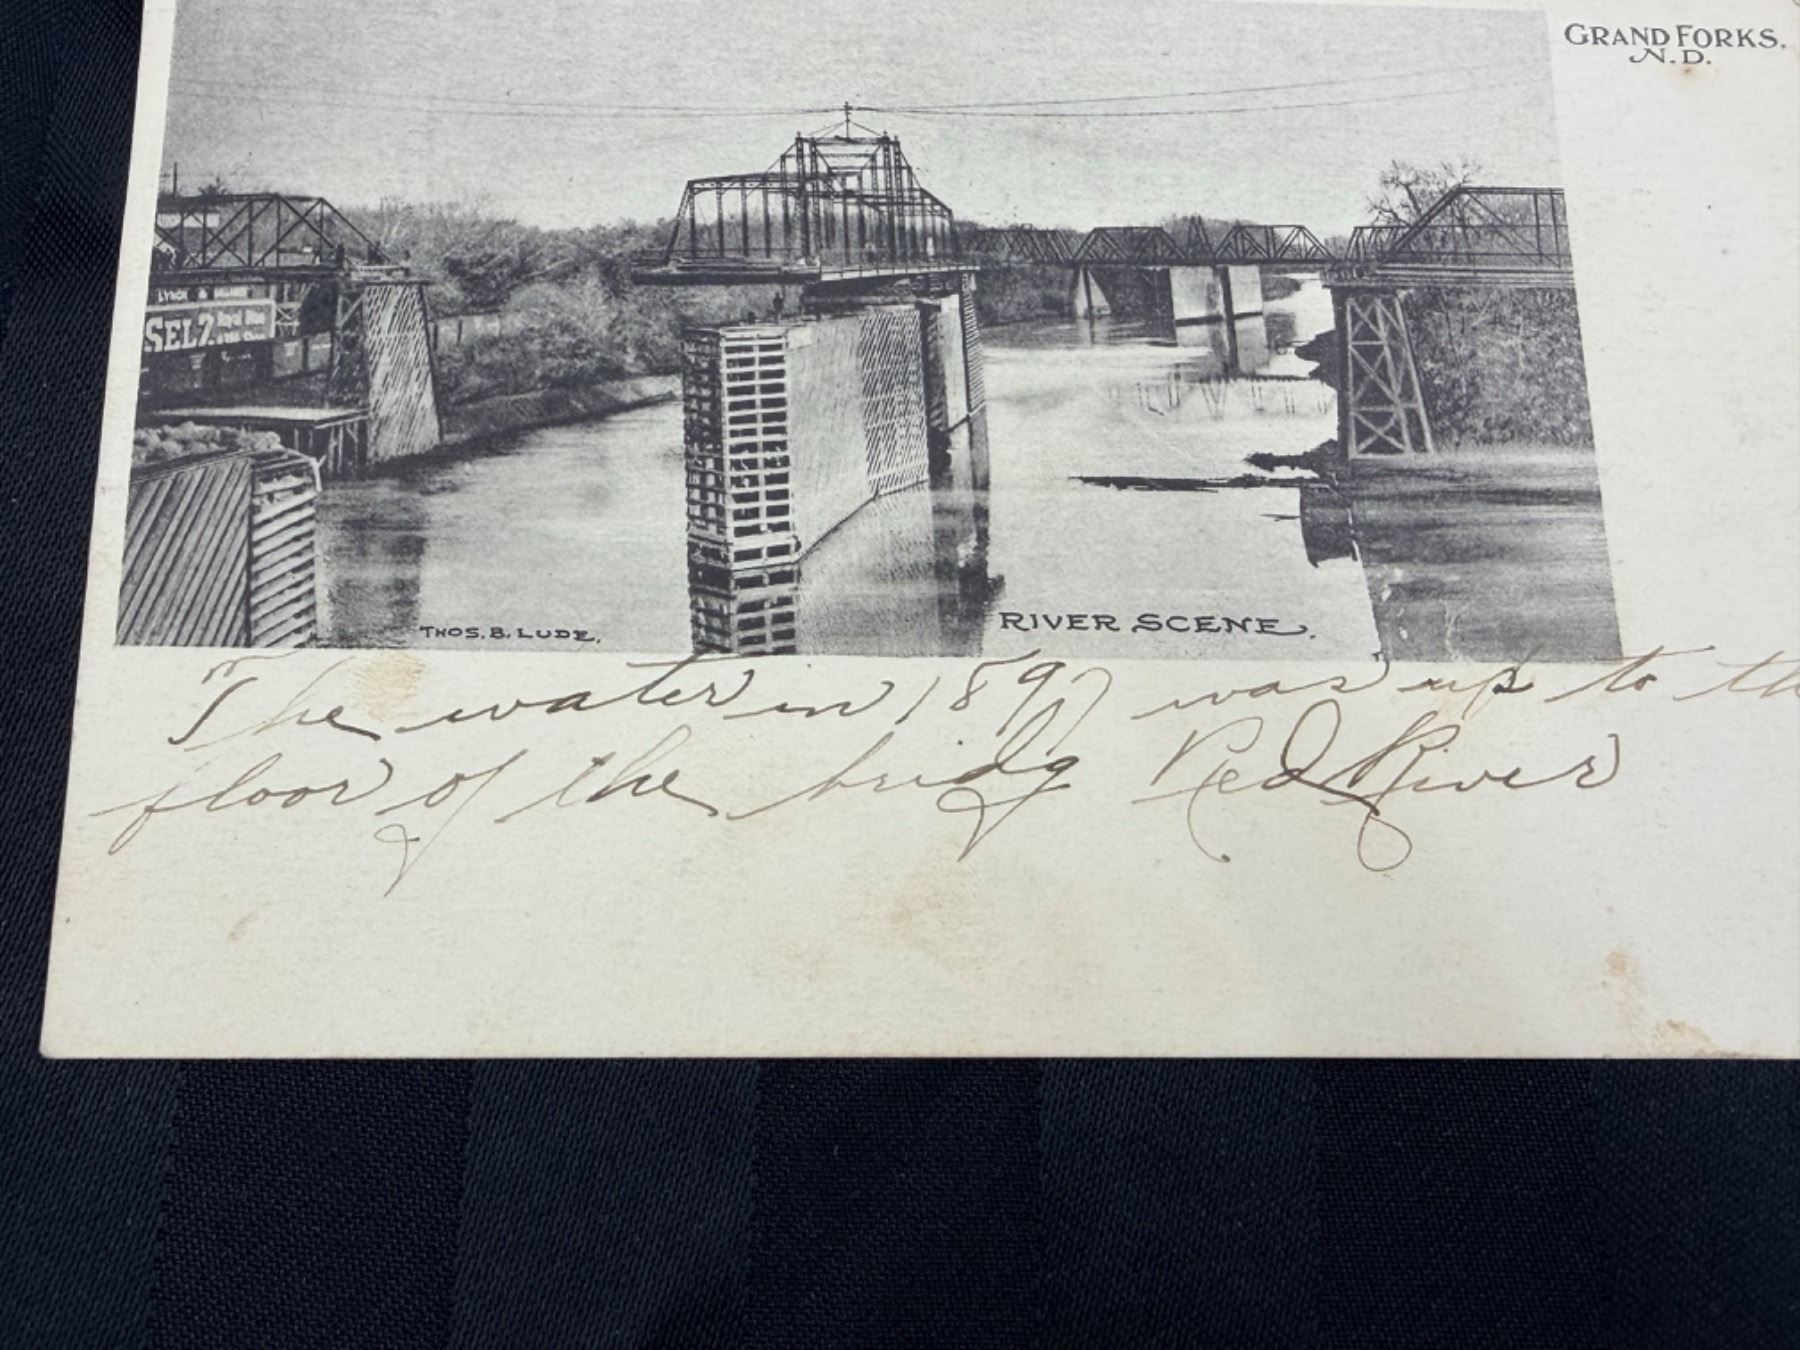 GRAND FORKS,
N. D.
LYNCH &
SELZ Royal Blue
THOS. B. LUDE.
RIVER SCENE.
"The water in 1897 was up to th
floor of the bridg Red River